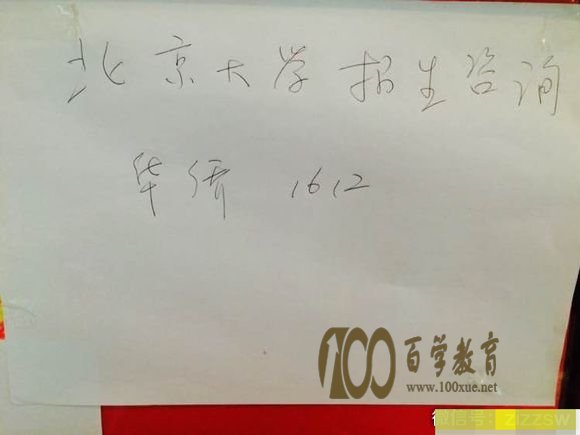 北京大学招生咨询
华侨 1612
100 百学教育
www.100xue.net
微信号: zizzsw